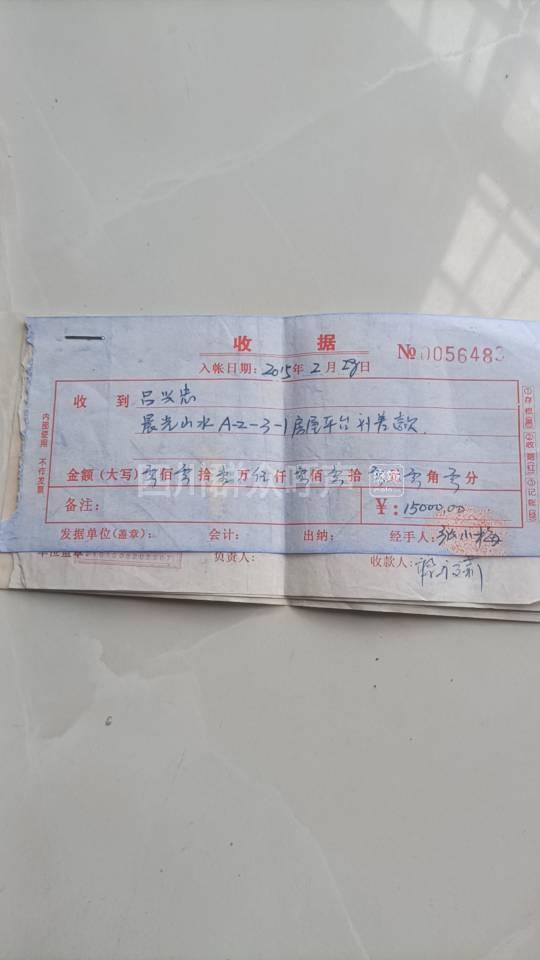 收 据
№0056483
入帐日期：2015年2月28日
收 到 吕兴忠
晨光山水A-2-3-1房屋平台补差款.
金额（大写）零佰零拾壹万伍仟零佰零拾零元零角零分
备注：
¥：15000.00
发据单位(盖章)：
会计：
出纳：
经手人：张小梅
内部使用 不作发票
①存根
②收据
③记帐
负责人：
收款人：
四川群众呼声